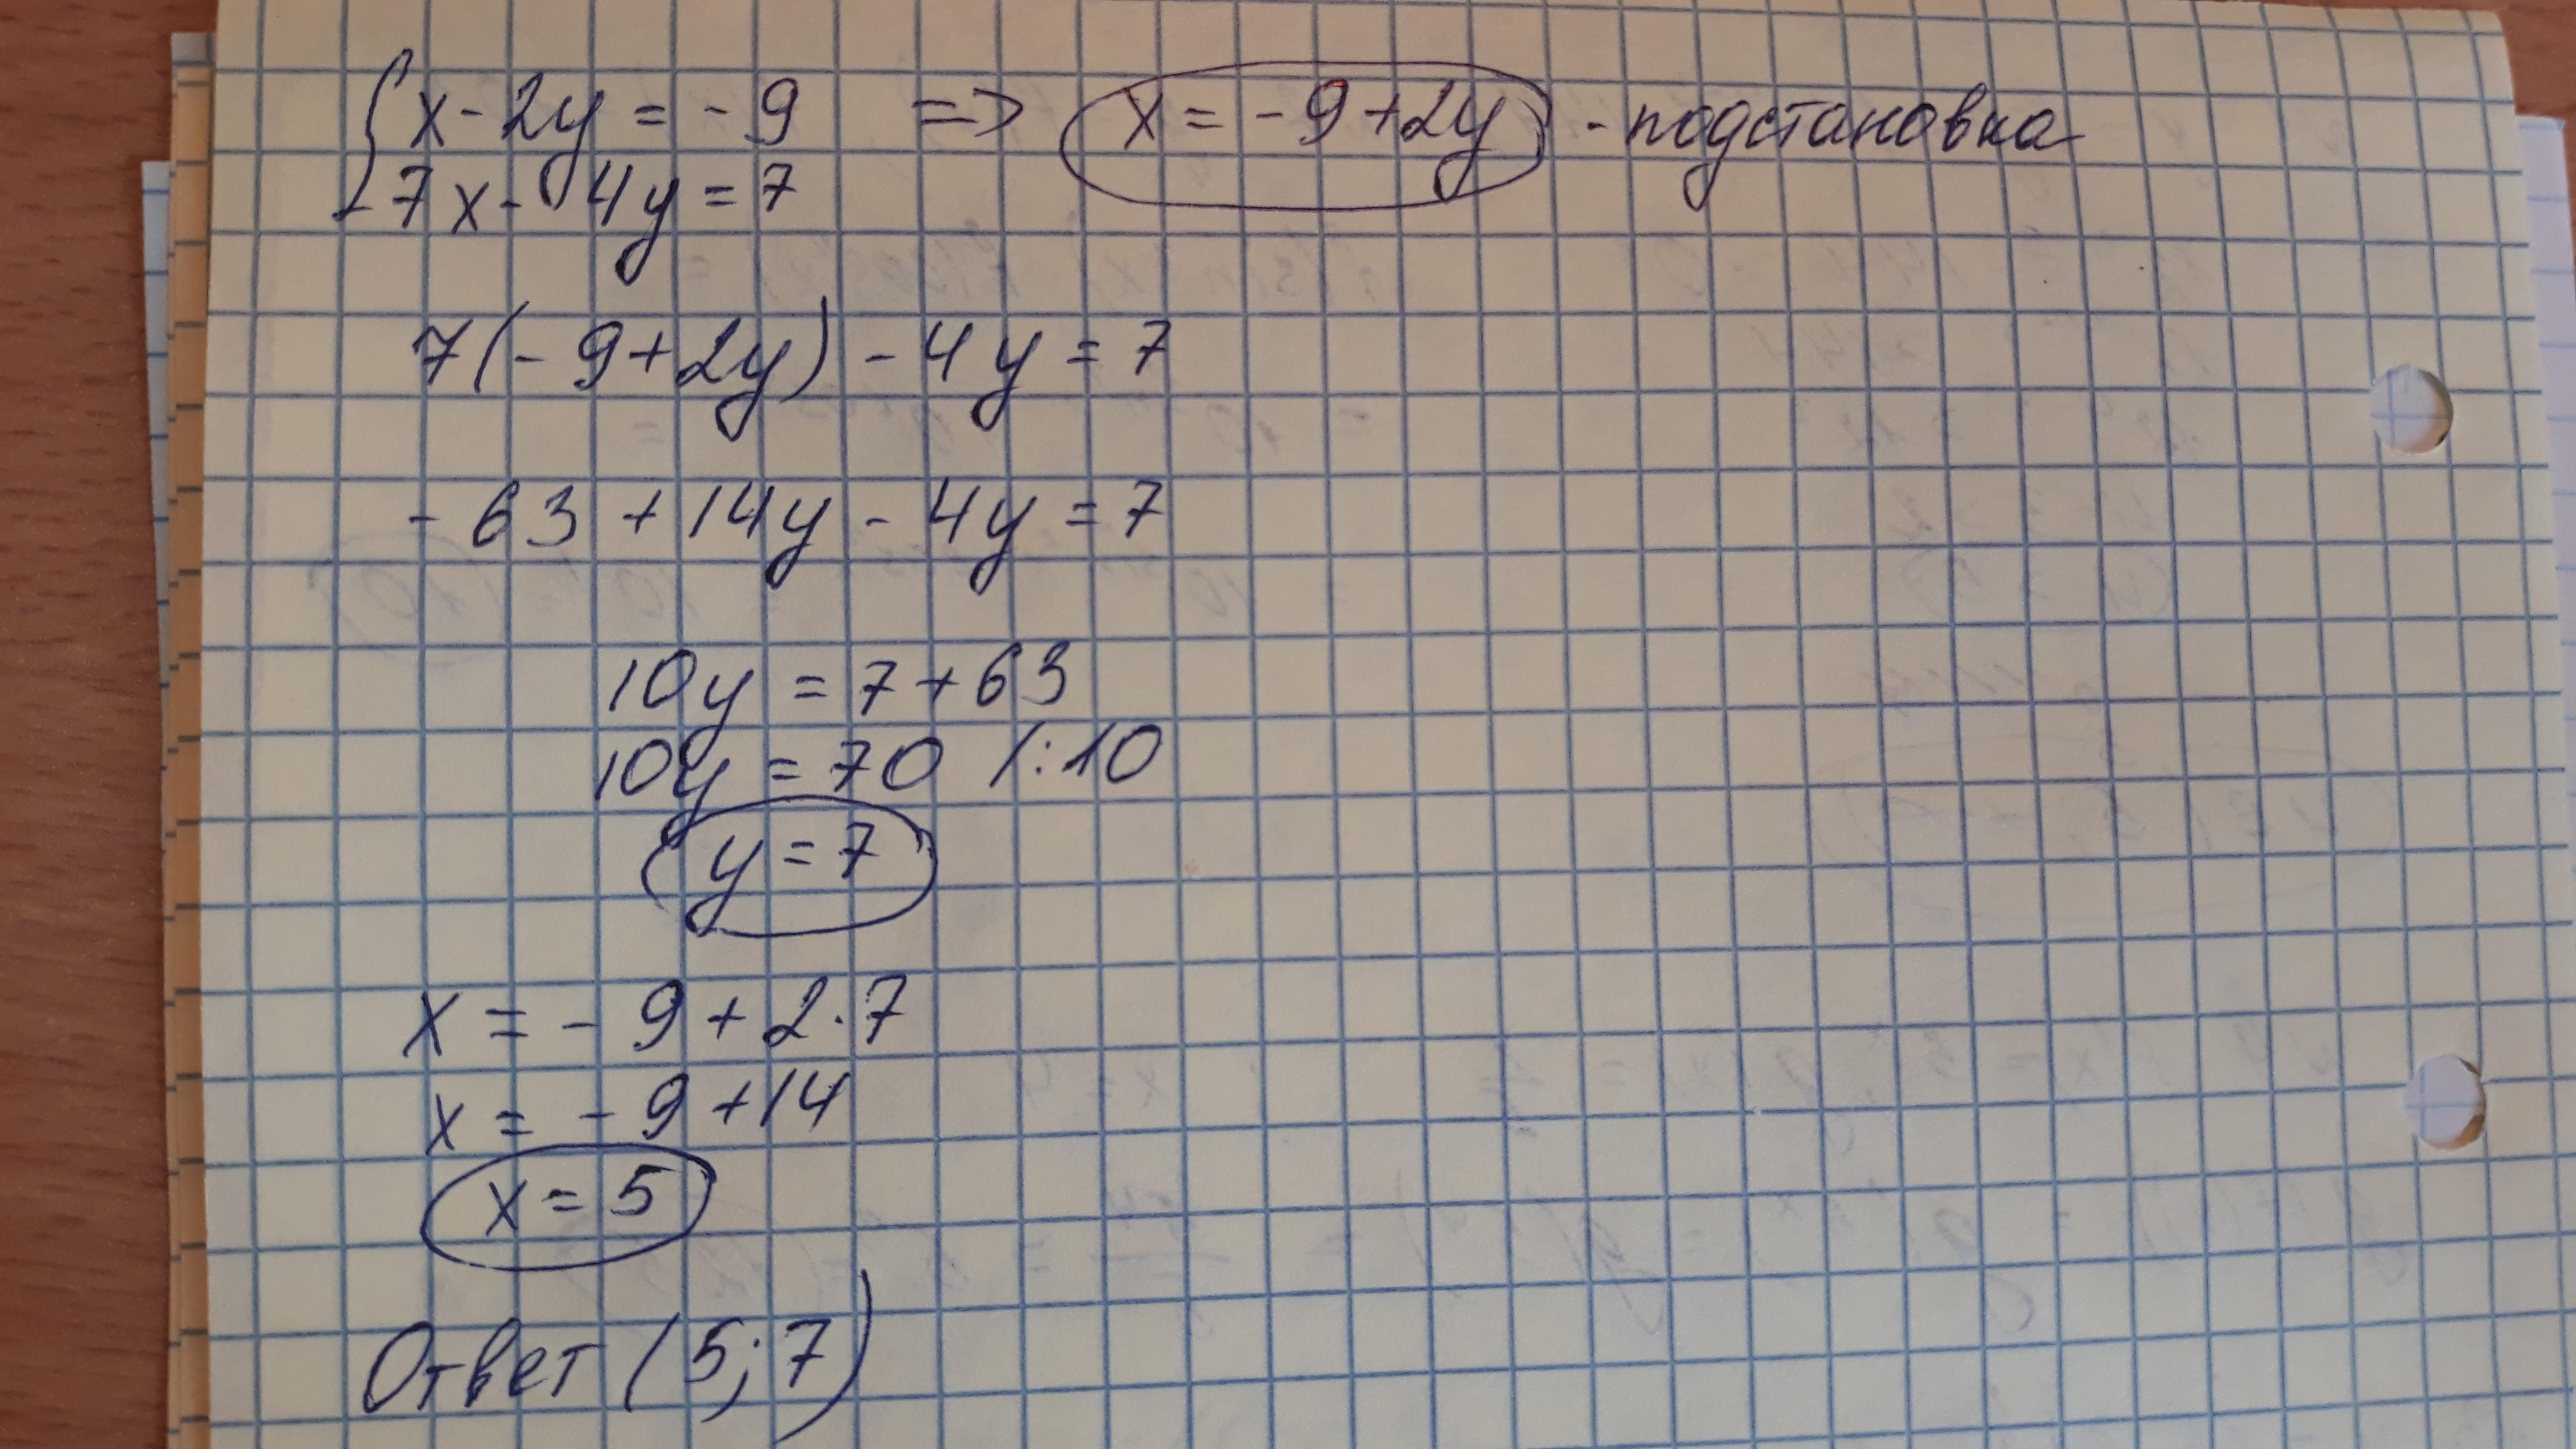 x - 2y = - 9 => x = - 9 + 2y - подстановка
7x - 4y = 7
7(- 9 + 2y) - 4y = 7
- 63 + 14y - 4y = 7
10y = 7 + 63
10y = 70 /:10
y = 7
x = - 9 + 2 · 7
x = - 9 + 14
x = 5
Ответ (5; 7)